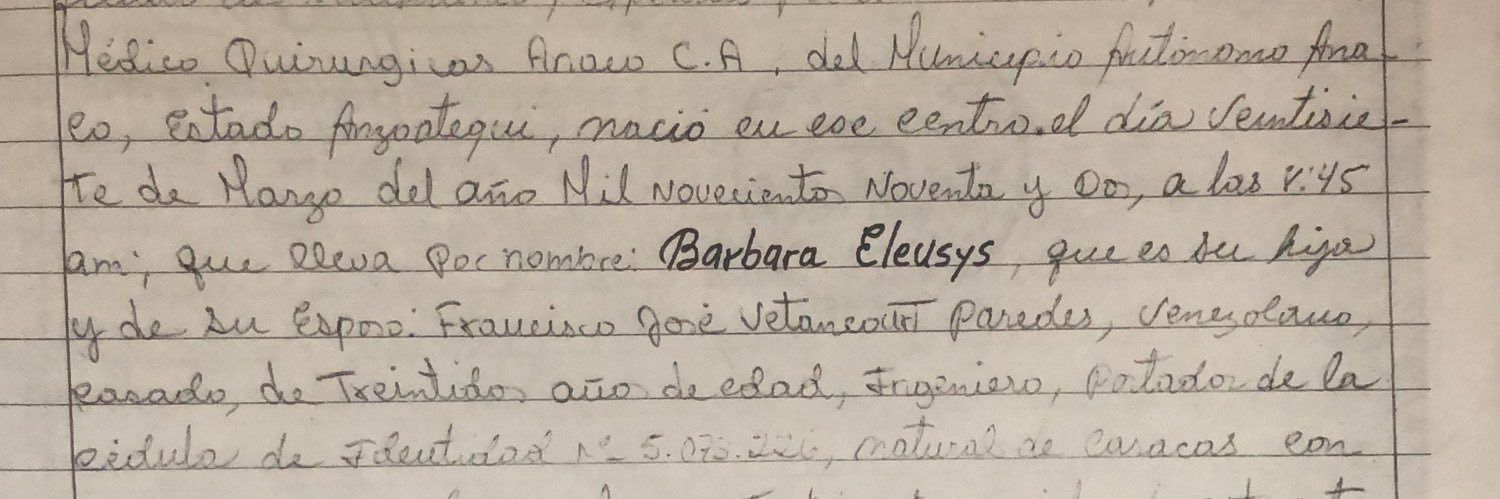 Médico Quirurgicas Anaco C.A, del Municipio Autónomo Ana-
co, Estado Anzoategui, nació en ese centro, el día Veintisie-
te de Marzo del año Mil Novecientos Noventa y Dos, a las 8:45
am; que lleva por nombre: Barbara Eleusys, que es su hija
y de su Esposo: Francisco José Vetancourt Paredes, Venezolano,
casado, de Treintidos años de edad, Ingeniero, Portador de la
cédula de Identidad Nº 5.073.226, natural de Caracas con